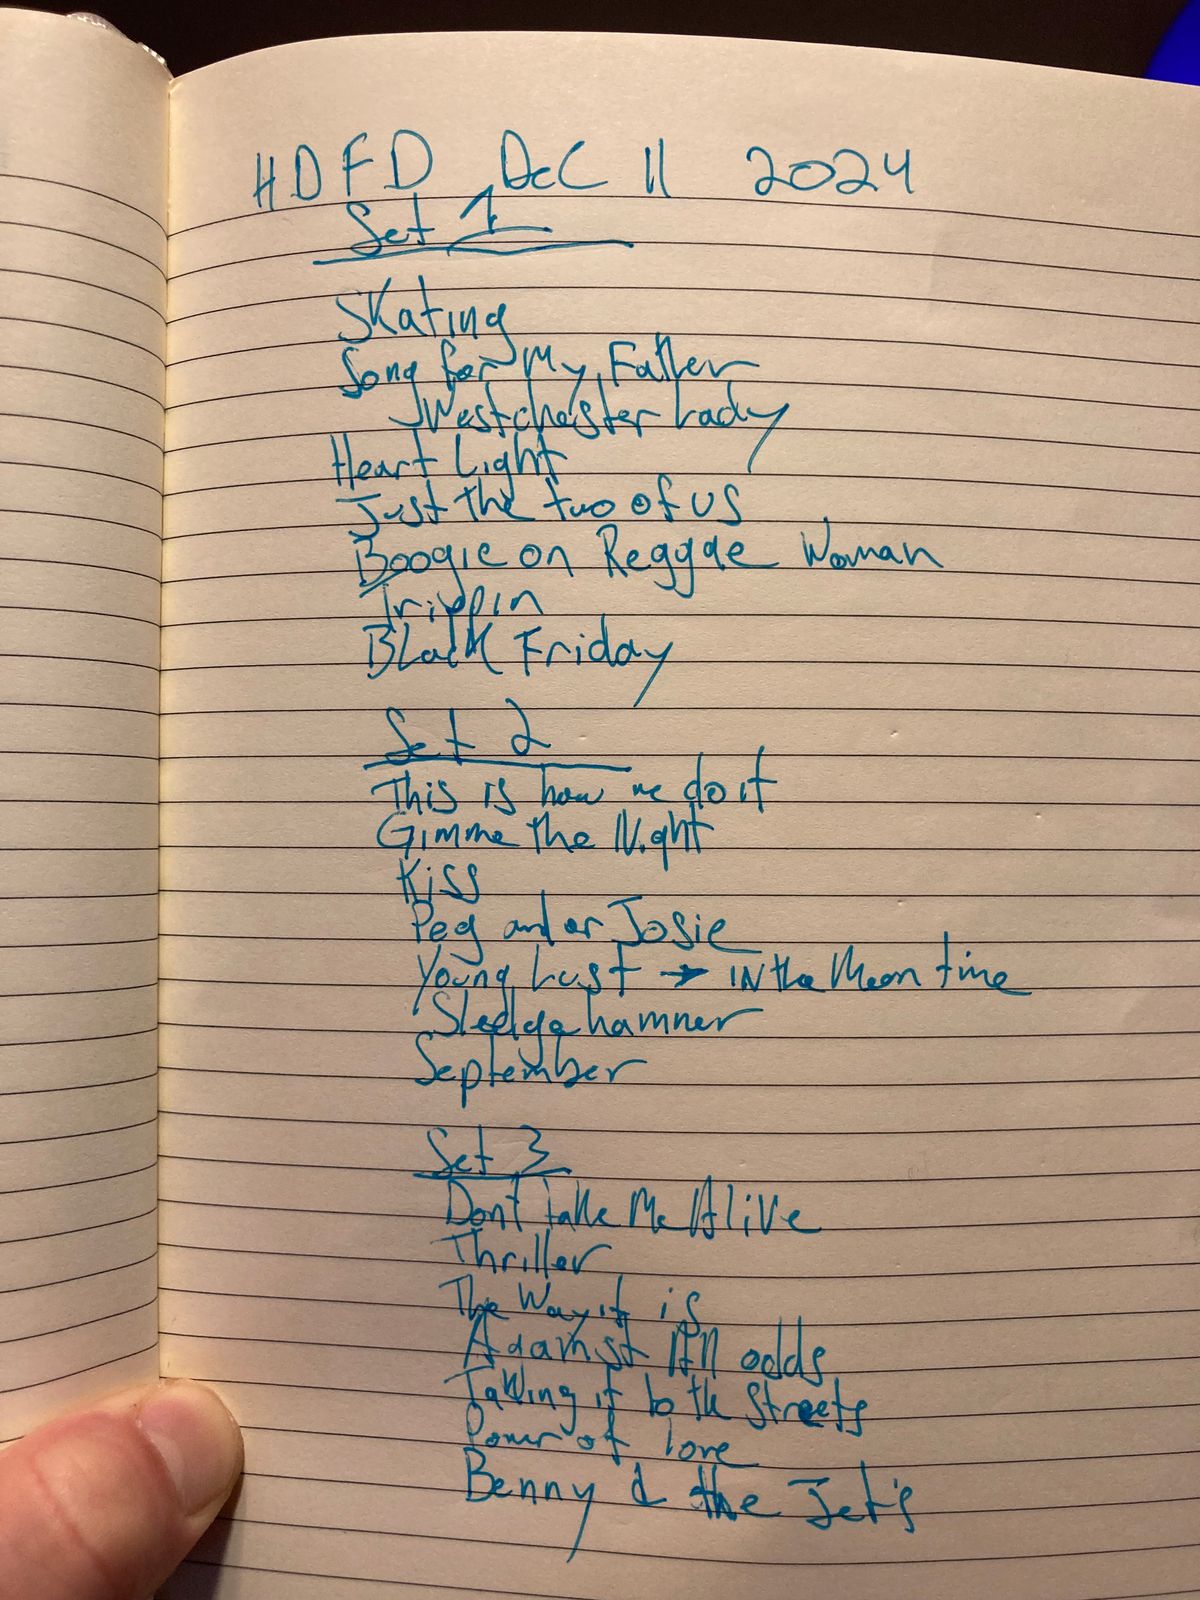 HDFD DeC 11 2024
Set 1
Skating
Song for My Father
Westchester Lady
Heart Light
Just the two of us
Boogie on Reggae Woman
Trippin
Black Friday
Set 2
This is how we do it
Gimme the Night
Kiss
Peg and or Josie
Young Lust → IN the Mean time
Sledge hammer
September
Set 3
Dont take Me Alive
Thriller
The Way it is
Against All odds
Taking it to the Streets
Power of love
Benny & the Jet's